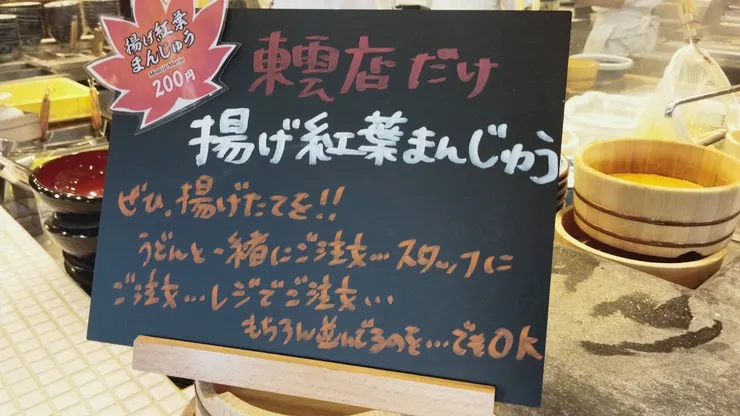 揚げ紅葉
まんじゅう
200円
東雲店だけ
揚げ紅葉まんじゅう
ぜひ、揚げたてを!!
うどんと一緒にご注文…スタッフに
ご注文…レジでご注文…
もちろん並んでるのを…でもOK